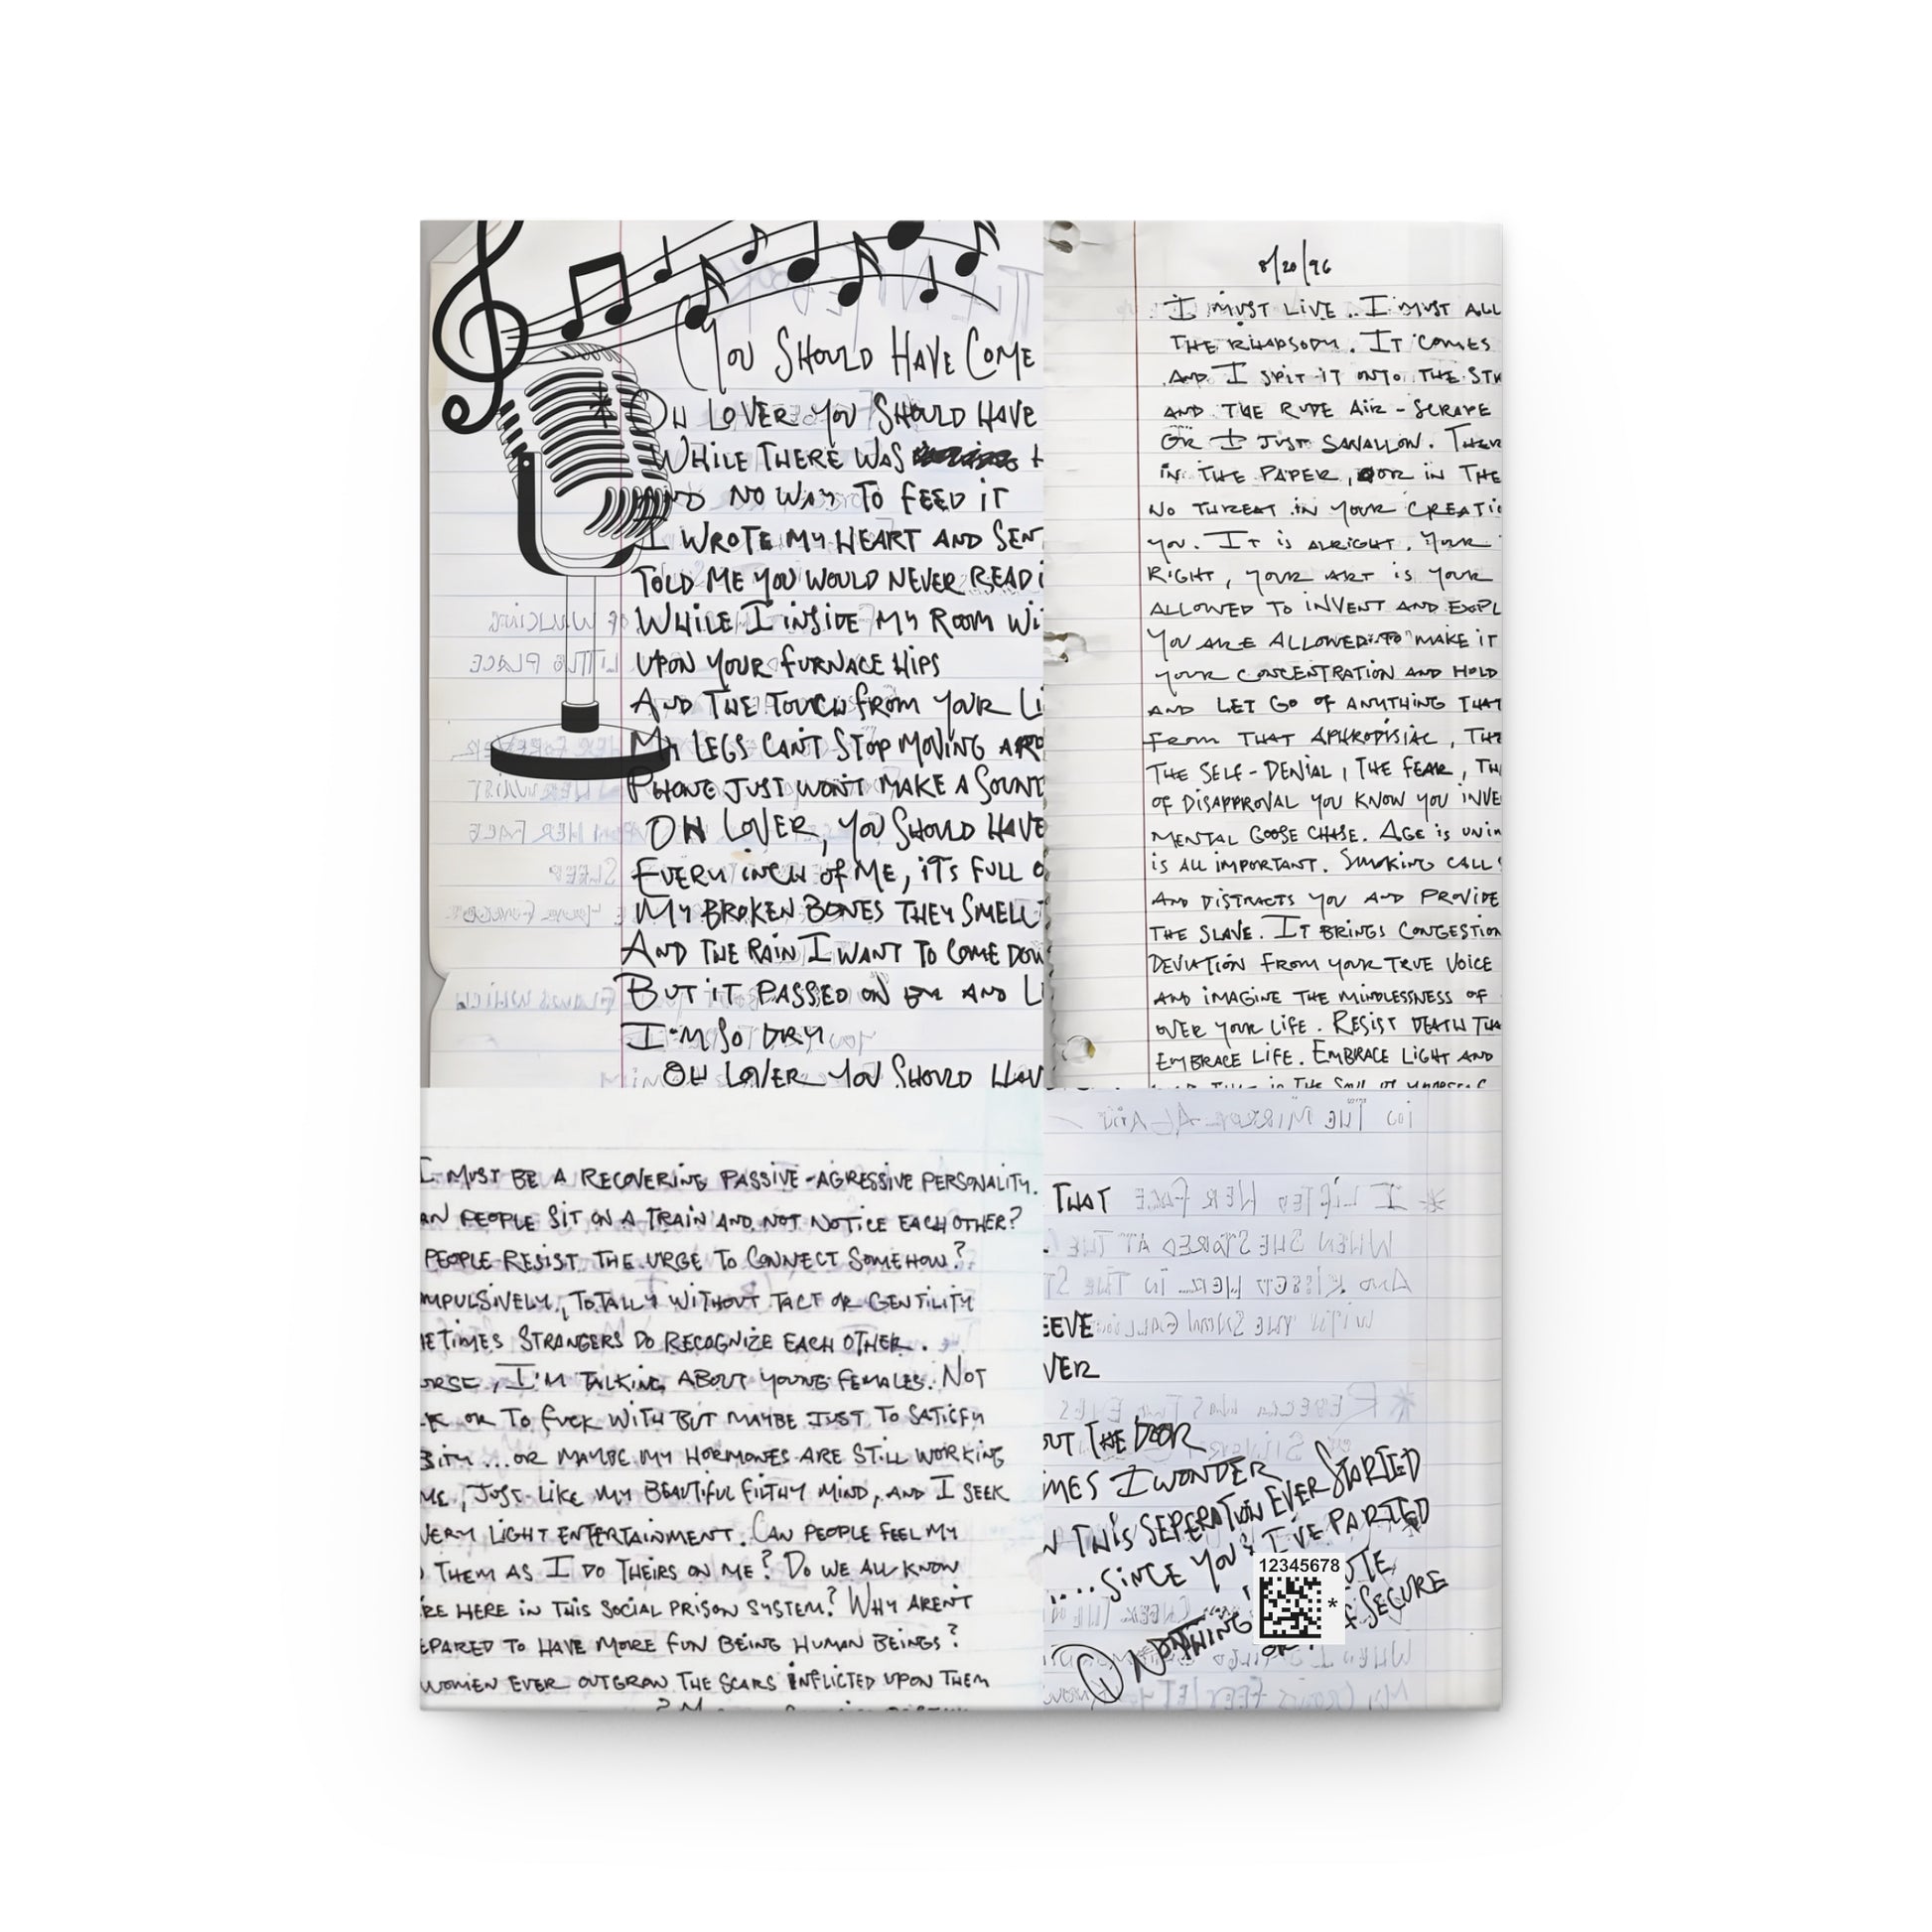 (You Should Have Come
* Oh LOVER you SHOULD HAVE
WHILE THERE WAS
AND NO WAY TO FEED iT
I WROTE MY HEART AND SEN
TOLD ME YOU WOULD NEVER READ i
WHILE I iNSiDE MY ROOM Wi
UPON YOUR FURNACE HiPS
AND THE TOUCH FROM YOUR Li
MY LEGS CAN'T STOP MOViNG ARO
PHONE JUST WON'T MAKE A SOUN
OH LOVER, YOU SHOULD HAVE
EVERY iNCH OF ME, iT'S FULL O
MY BROKEN BONES THEY SMELL
AND THE RAiN I WANT TO COME DOW
BUT iT PASSED ON AND L
I'M SO DRY
OH LOVER YOU SHOULD HAV
8/20/96
I MUST LiVE.. I MUST ALL
THE RHAPSODY. IT COMES
AND I SPiT iT ONTO THE STA
AND THE RUDE AiR - SCRAPE
OR I JUST SWALLOW. THER
iN THE PAPER, OR iN THE
NO THREAT iN YOUR CREATi
YOU. IT iS ALRiGHT. YOUR
RiGHT, YOUR ART iS YOUR
ALLOWED TO iNVENT AND EXPL
YOU ARE ALLOWED TO MAKE iT
YOUR CONCENTRATiON AND HOLD
AND LET GO OF ANYTHiNG THAT
FROM THAT APHRODiSiAC, THE
THE SELF-DENiAL, THE FEAR, TH
OF DiSAPPROVAL YOU KNOW YOU iNVE
MENTAL GOOSE CHASE. AGE iS UNiM
iS ALL iMPORTANT. SMOKiNG CALLS
AND DiSTRACTS YOU AND PROViDE
THE SLAVE. IT BRiNGS CONGESTiON
DEViATiON FROM YOUR TRUE VOiCE
AND iMAGiNE THE MiNDLESSNESS OF
OVER YOUR LiFE. RESiST DEATH THA
EMBRACE LiFE. EMBRACE LiGHT AND
I MUST BE A RECOVERiNG PASSiVE-AGRESSiVE PERSONALiTY.
AN PEOPLE SiT ON A TRAiN AND NOT NOTiCE EACH OTHER?
PEOPLE RESiST THE URGE TO CONNECT SOMEHOW?
MPULSiVELY, TOTALLY WiTHOUT TACT OR GENTiLiTY
METiMES STRANGERS DO RECOGNiZE EACH OTHER.
ORSE, I'M TALKiNG ABOUT YOUNG FEMALES. NOT
K OR TO FUCK WiTH BUT MAYBE JUST TO SATiSFY
SiTY ... OR MAYBE MY HORMONES ARE STiLL WORKiNG
ME, JUST LiKE MY BEAUTiFUL FiLTHY MiND, AND I SEEK
VERY LiGHT ENTERTAiNMENT. CAN PEOPLE FEEL MY
THEM AS I DO THEiRS ON ME? DO WE ALL KNOW
RE HERE iN THiS SOCiAL PRiSON SYSTEM? WHY AREN'T
EPARED TO HAVE MORE FUN BEiNG HUMAN BEiNGS?
WOMEN EVER OUTGROW THE SCARS iNFLiCTED UPON THEM
THAT
EEVE
VER
OUT THE DOOR
iMES I WONDER
N THiS SEPERATiON EVER STARTED
.... SiNCE YOU & I'VE PARTED
① NOTHiNG
OR & SECURE
12345678
*